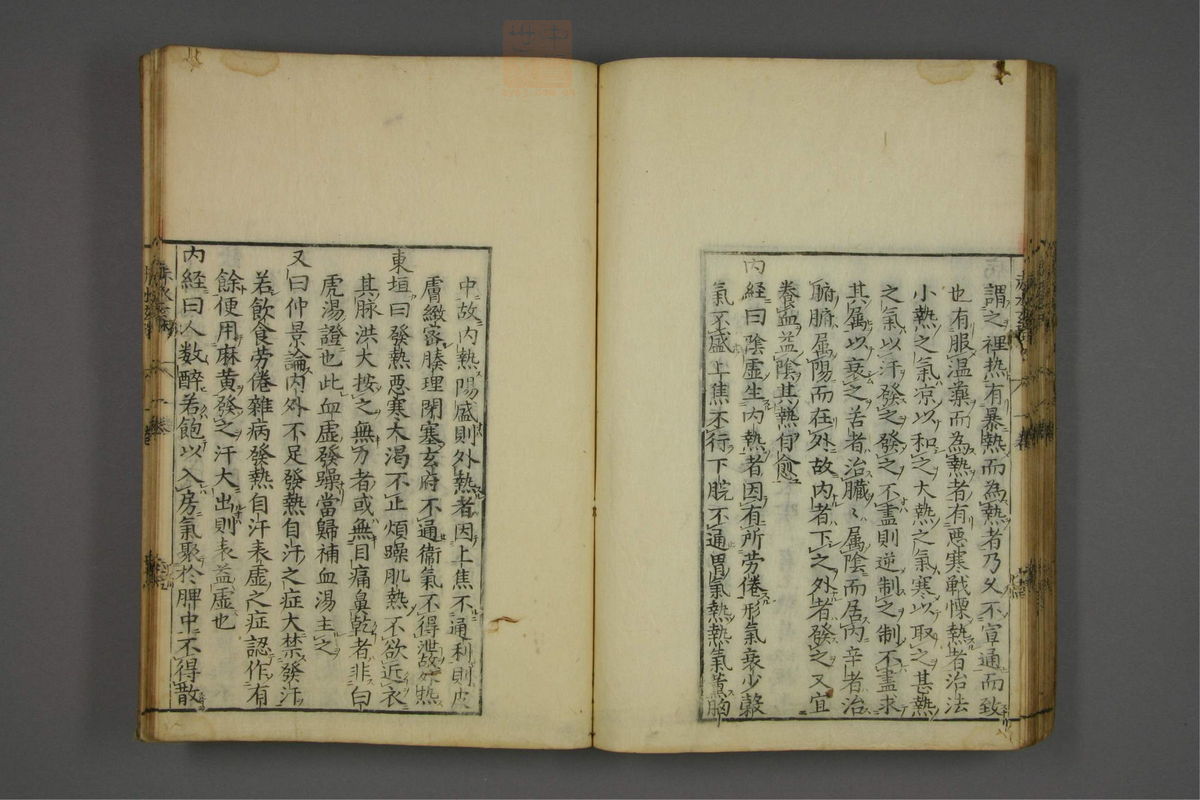 謂之裡热有暴熱而為熱者乃久不宣通而致
也有服温藥而為熱者有惡寒戰慄熱者治法
小熱之氣凉以和之大熱之氣寒以取之甚熱
之氣以汗發之發之不盡則逆制之制不盡求
其属以衰之苦者治臓〻属陰而居内辛者治
腑腑属陽而在外故内者下之外者發之又宜
養血益陰其熱自愈
内経曰陰虚生内熱者因有所労倦形氣衰少穀
氣不盛上焦不行下脘不通胃氣熱熱氣薫胸
中故内熱陽盛則外熱者因上焦不通利則皮
膚緻密腠理閉塞玄府不通衞氣不得泄故外熱
東垣曰發熱惡寒大渴不止煩躁肌熱不欲近衣
其脉洪大按之無力者或無目痛鼻乾者非白
虎湯證也此血虚發躁當歸補血湯主之
又曰仲景論内外不足發熱自汗之症大禁發汗
若飲食労倦雜病發熱自汗表虚之症認作有
餘便用麻黄發之汗大出則表益虚也
内経曰人数醉若飽以入房氣聚於脾中不得散